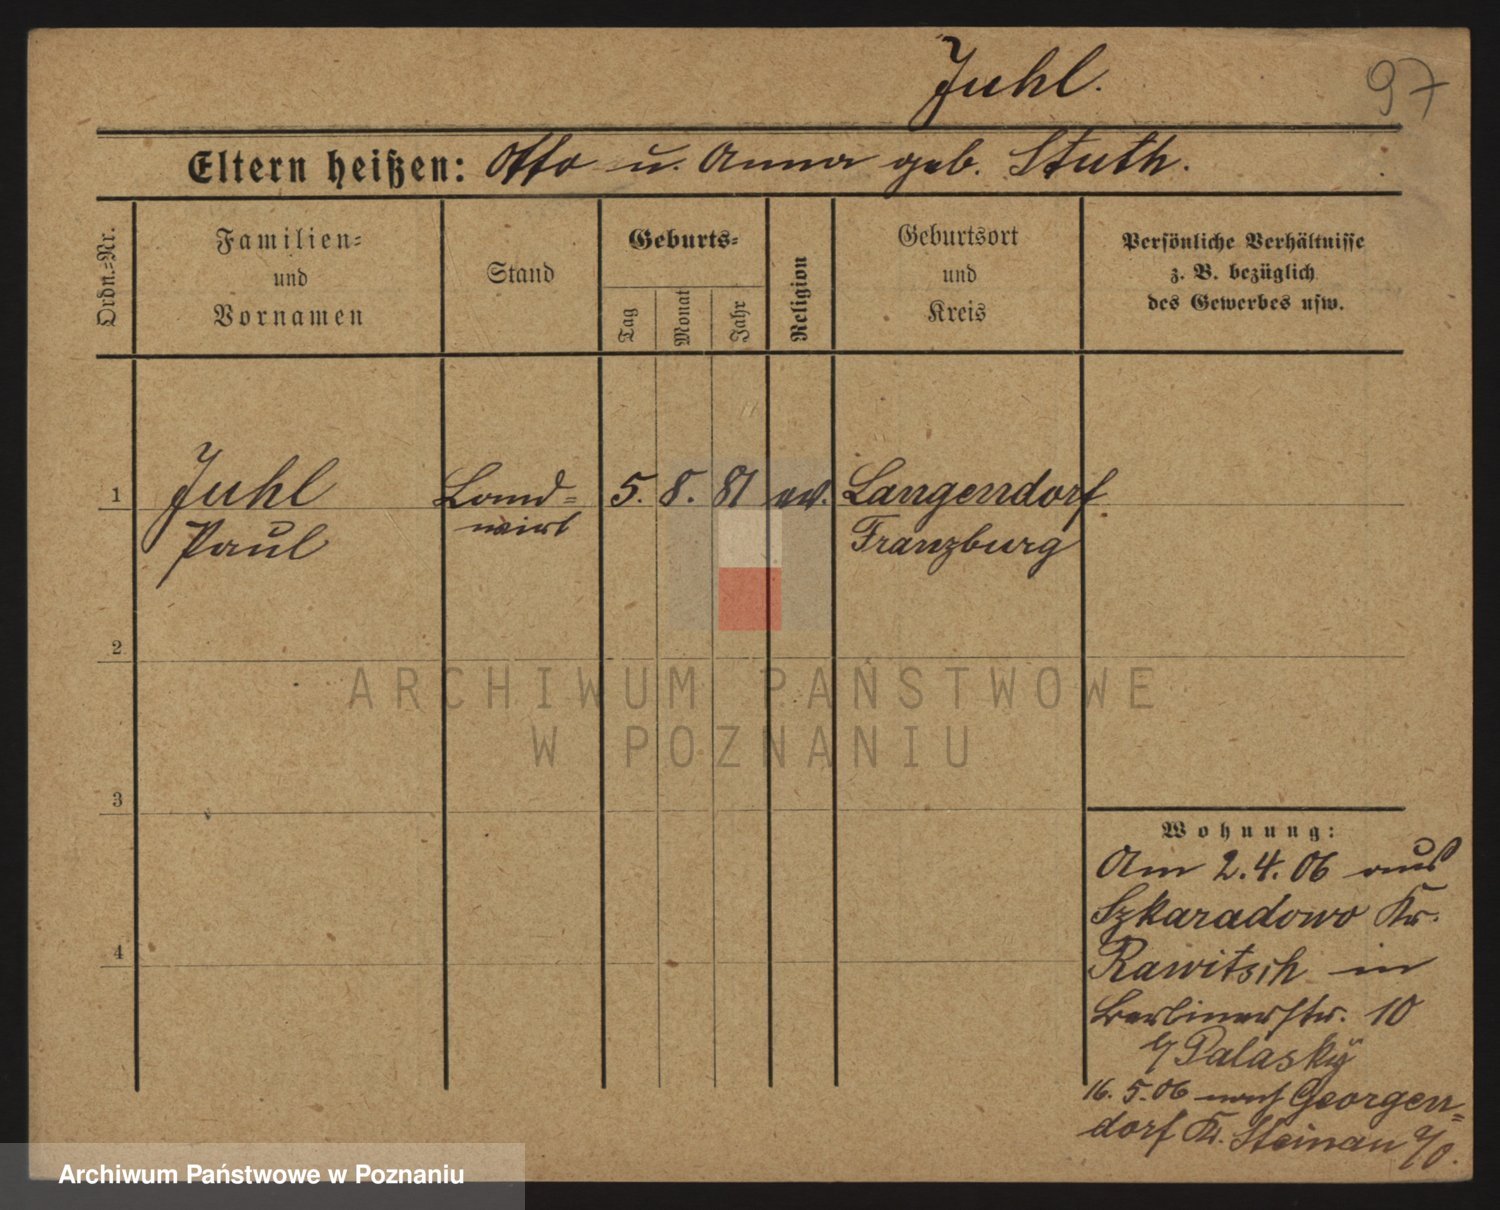 Juhl.
97
Eltern heißen: Otto u. Anna geb. Stuth.
Ordn.=Nr.
Familien=
und
Vornamen
Stand
Geburts=
Tag
Monat
Jahr
Religion
Geburtsort
und
Kreis
Persönliche Verhältnisse
z. B. bezüglich
des Gewerbes usw.
1
Juhl
Paul
Land=
wirt
5. 8. 81 ev.
Langendorf
Franzburg
2
3
4
Wohnung:
Am 2.4.06 aus
Szkaradowo Kr.
Rawitsch in
Berlinerstr. 10
b/ Palasky
16.5.06 nach Georgen=
dorf Kr. Steinau a/O.
ARCHIWUM PAŃSTWOWE
W POZNANIU
Archiwum Państwowe w Poznaniu